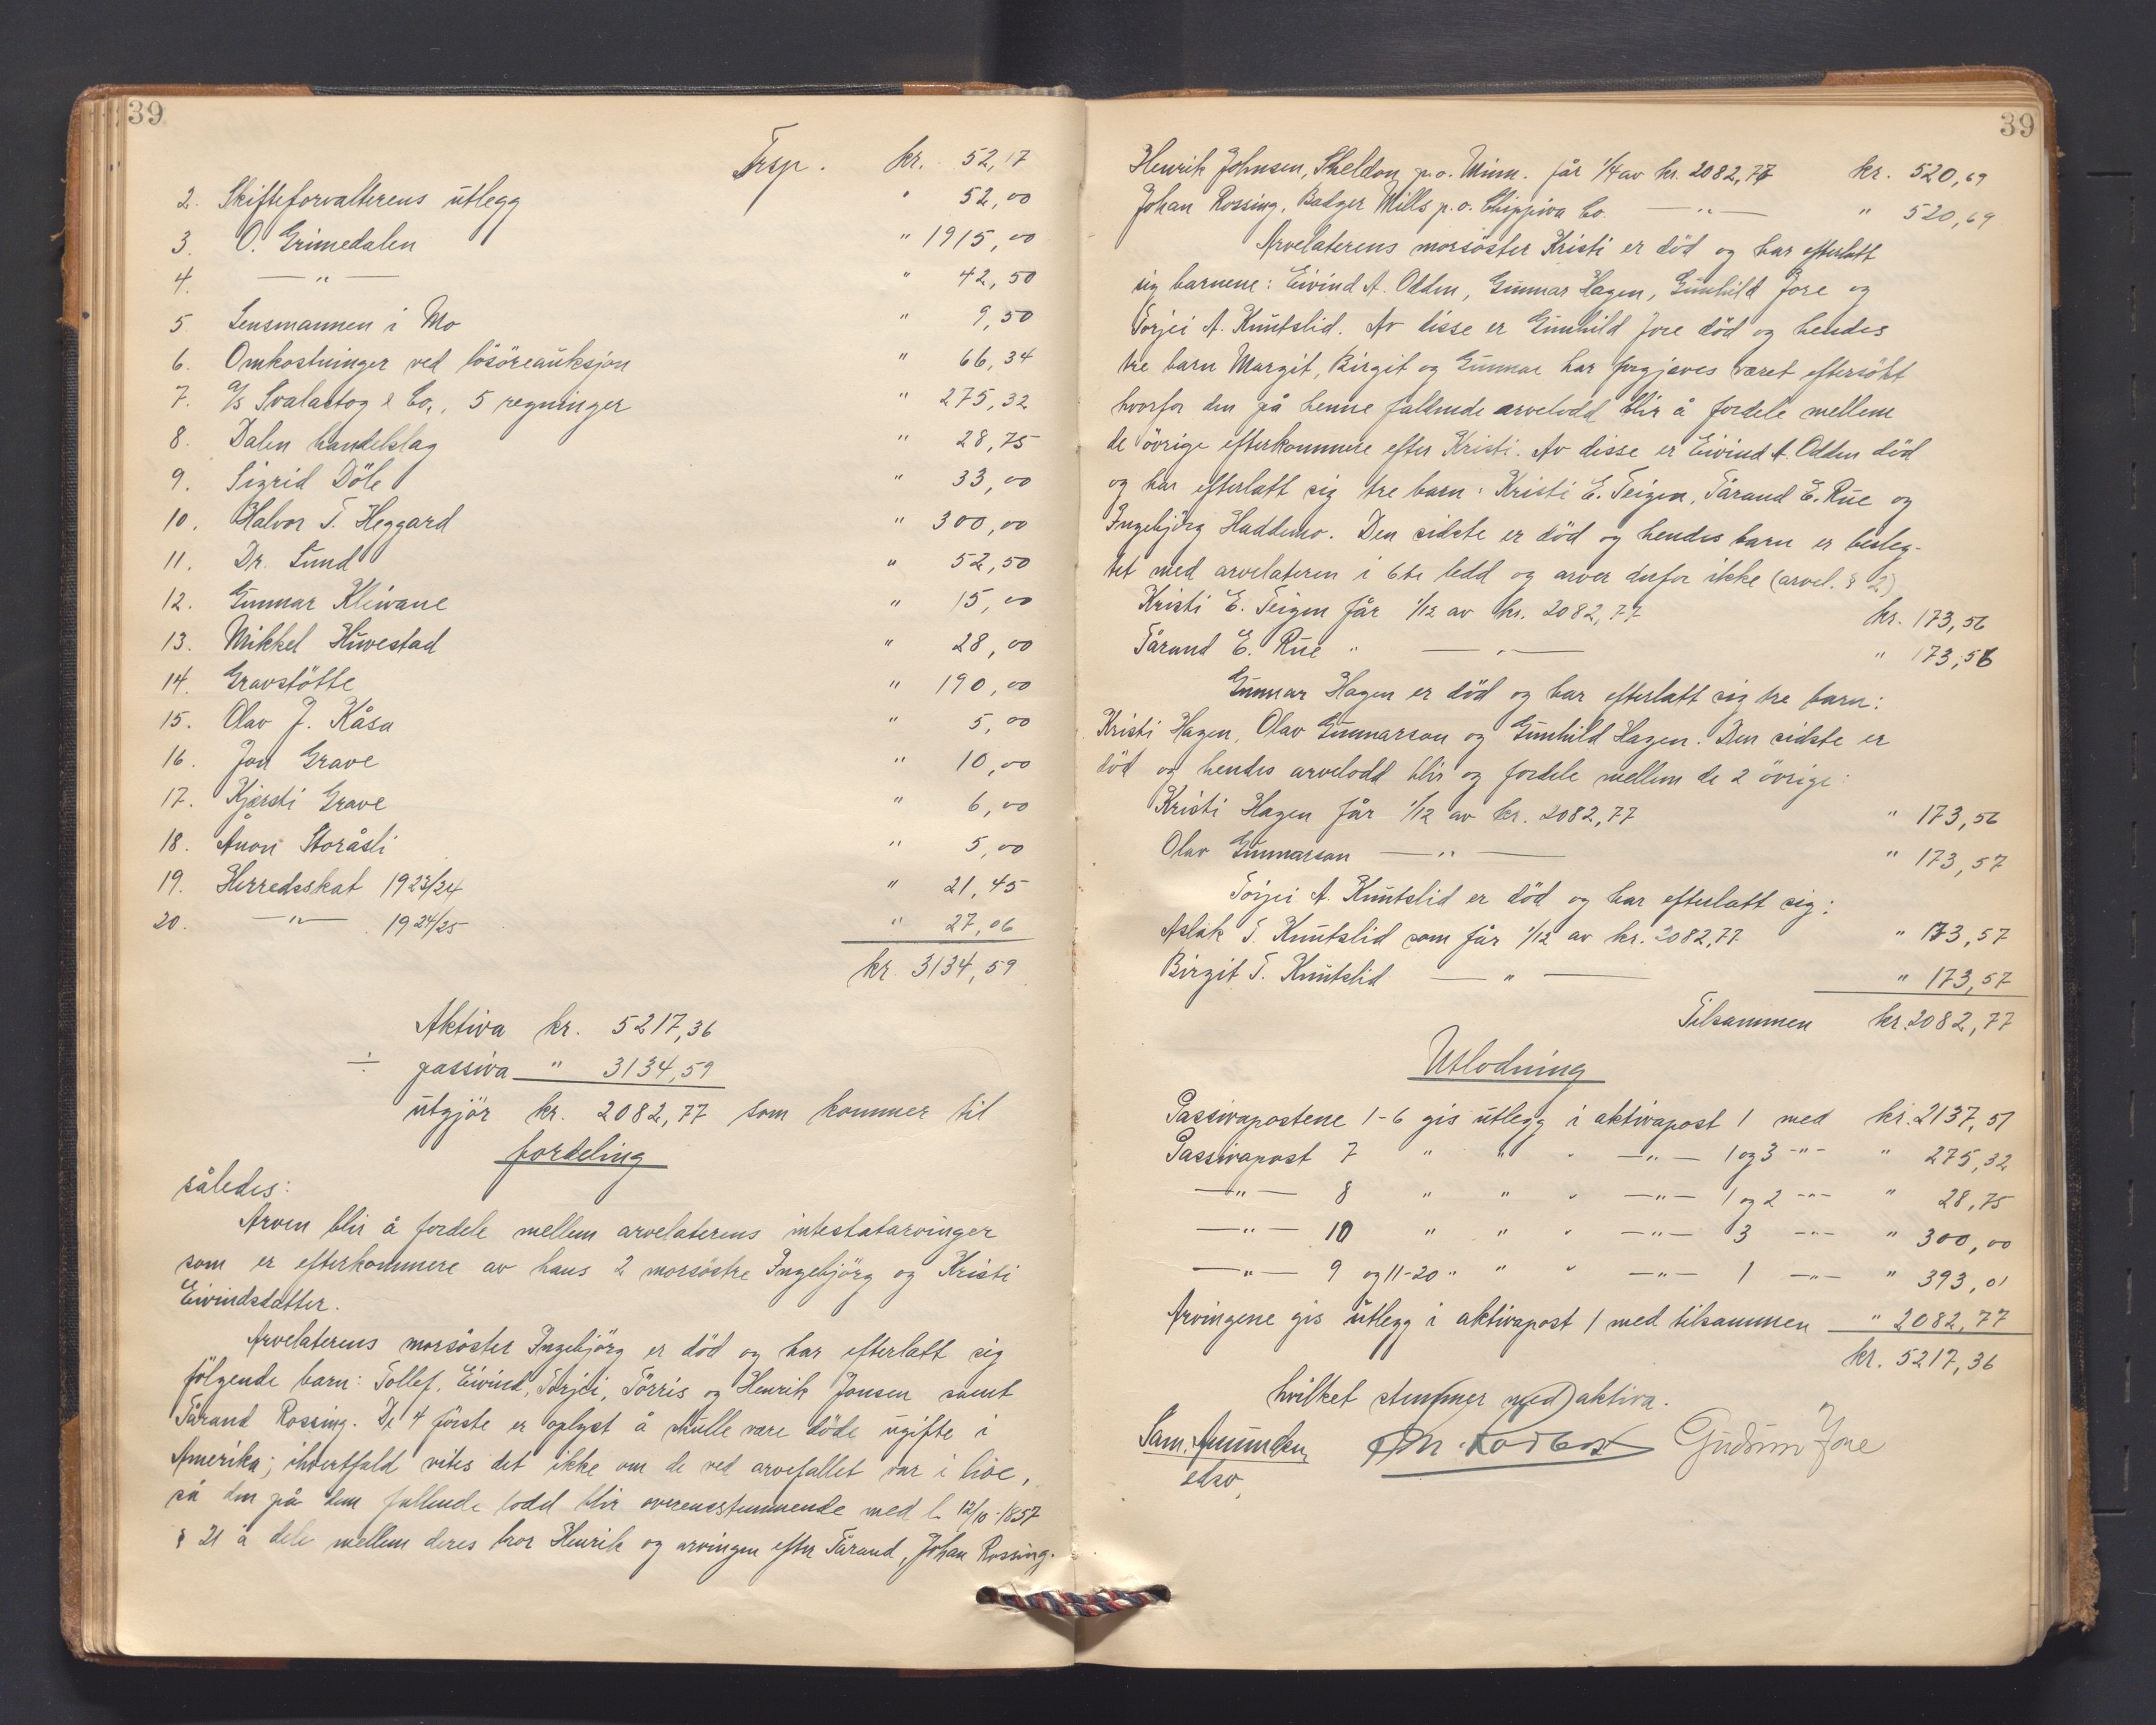 39
Trsp. kr. 52,17
2. Skifteforvalterens utlegg " 52,00
3. O. Grimedalen " 1915,00
4. —"— " 42,50
5 Lensmannen i Mo " 9,50
6. Omkostninger ved lösöreauksjon " 66,34
7. A/S Svalastog & Co., 5 regninger " 275,32
8. Dalen handelslag " 28,75
9. Sigrid Döle " 33,00
10. Halvor T. Heggard " 300,00
11. Dr. Lund " 52,50
12. Gunnar Kliwane " 15,00
13. Mikkel Huvestad " 28,00
14. Gravstötte " 190,00
15. Olav J. Kåsa " 5,00
16. Jon Grave " 10,00
17. Kjersti Grave " 6,00
18. Auon Storåsli " 5,00
19. Herredsskat 1923/24 " 21,45
20. —"— 1924/25 " 27,06
kr. 3134,59
Aktiva kr. 5217,36
÷ passiva " 3134,59
utgjör kr. 2082,77 som kommer til
fordeling
således:
Arven blir å fordele mellem arvelaterens intestatarvinger
som er efterkommere av hans 2 morsöstre Ingebjörg og Kristi
Eivindsdatter.
Arvelaterens morsöster Ingebjörg er död og har efterlatt sig
fölgende barn: Tollef, Eivind, Torjei, Törris og Henrik Jonsen samt
Tårand Rossing. De 4 förste er oplyst å skulle være döde ugifte i
Amerika; ihvertfald vites det ikke om de ved arvefallet var i live,
så den på dem fallende lodd blir overensstemmende med l. 12/10-1857
§ 21 å dele mellem deres bror Henrik og arvingen efter Tårand, Johan Rossing.
39
Henrik Johnsen, Sheldon p.o. Minn. får 1/4 av kr. 2082,77 kr. 520,69
Johan Rossing, Badger Mills p.o. Chippiva Co. —"— " 520,69
Arvelaterens morsöster Kristi er död og har efterlatt
sig barnene: Eivind A. Odden, Gunnar Hagen, Gunhild Jore og
Torjei A. Knutslid. Av disse er Gunhild Jore död og hendes
tre barn Margit, Birgit og Gunnar har forgjæves været eftersökt
hvorfor den på henne faldende arvelodd blir å fordele mellem
de övrige efterkommere efter Kristi. Av disse er Eivind A. Odden död
og har efterlatt sig tre barn: Kristi E. Teigen, Tårand E. Rue og
Ingebjörg Haddemo. Den sidste er död og hendes barn er besleg-
tet med arvelateren i 6te ledd og arver derfor ikke (arvel. § 2)
Kristi E. Teigen får 1/12 av kr. 2082,77 kr. 173,56
Tårand E. Rue " —"— " 173,56
Gunnar Hagen er död og har efterlatt sig tre barn:
Kristi Hagen, Olav Gunnarson og Gunhild Hagen. Den sidste er
död og hendes arvelodd blir og fordele mellem de 2 övrige:
Kristi Hagen får 1/12 av kr. 2082,77 " 173,56
Olav Gunnarson —"— " 173,57
Torjei A. Knutslid er död og har efterlatt sig:
Aslak T. Knutslid som får 1/12 av kr. 2082,77 " 173,57
Birgit T. Knutslid —"— " 173,57
Tilsammen kr. 2082,77
Utlodning
Passivapostene 1-6 gis utlegg i aktivapost 1 med kr. 2137,51
Passivapost 7 " " " —"— 1 og 3 -"- " 275,32
—"— 8 " " " —"— 1 og 2 -"- " 28,75
—"— 10 " " " —"— 3 -"- " 300,00
—"— 9 og 11-20 " " " —"— 1 -"- " 393,01
Arvingene gis utlegg i aktivapost 1 med tilsammen " 2082,77
kr. 5217,36
hvilket stemmer med aktiva.
Sam. Amundsen Gudrun Jore
edsv.